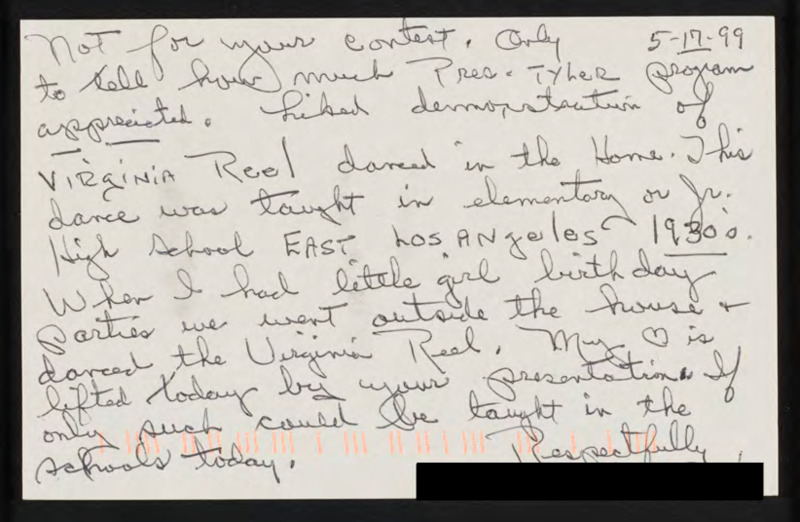 Not for your contest. Only 5-17-99
to tell how much Pres. TYLER program
appreciated. Liked demonstration of
VIRGINIA Reel danced in the Home. This
dance was taught in elementary or Jr.
High School EAST LOS ANgeles 1930's.
When I had little girl birthday
parties we went outside the house &
danced the Virginia Reel. My ♡ is
lifted today by your presentation. If
only such could be taught in the
schools today. Respectfully,